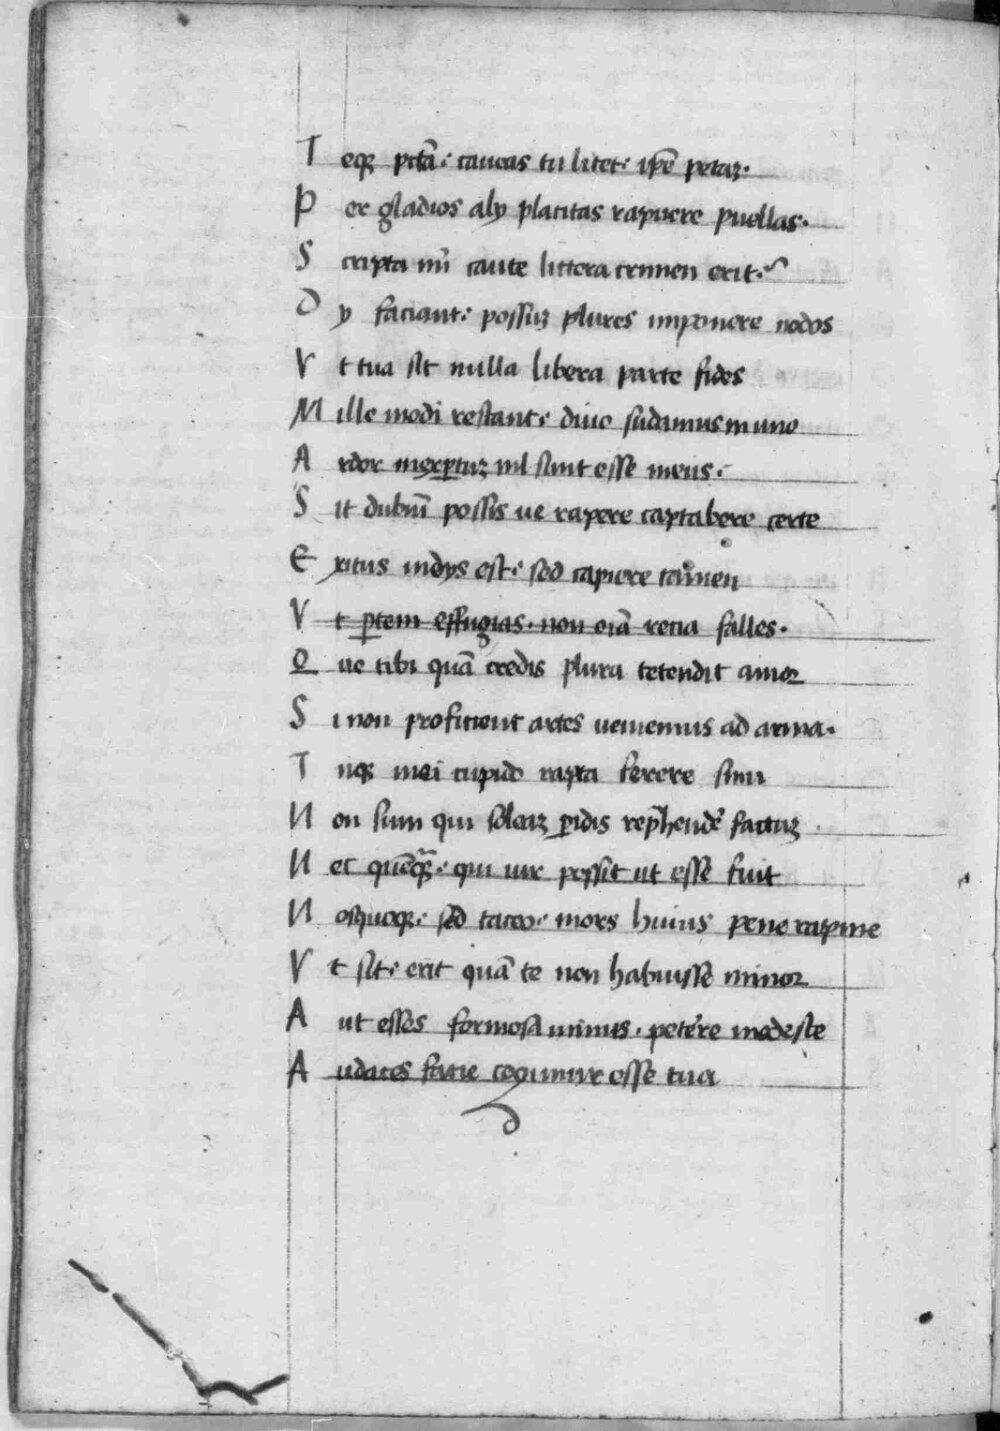 T eqꝫ petā· caueas tu licet· ipē petaꝫ·
P er gladios alij placitas rapuere puellas·
S cripta mi᷑ caute littera crimen erit·
D ij faciant· possuꝫ plures imponere nodos
V t tua sit nulla libera parte fides
M ille modi restant· diuo sudamus in uno
A rdor inexpertuꝫ nil sinit esse meus·
S it dubiū possis ue rapere captabere certe
E xitus in dijs est· sed capiere tamen
V t ꝑtem effugias· non oīa retia falles·
Q ue tibi quā credis plura tetendit amor
S i non proficient artes ueniemus ad arma·
T uqꝫ mei cupido rapta ferere sinu
N on sum qui soleaꝫ ꝑidis rep̄hendē factuꝫ
N ec quēqꝫ· qui uir possit ut esse fuit
N osquoqꝫ· sed taceo· mors huius pene rapine
V t sit· erit quā te non habuisse minor
A ut esses formosa minus· petēre modeste
A udaces facie cogimur esse tua